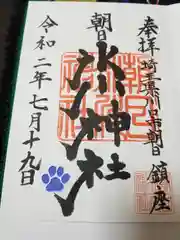 奉拝 埼玉県川口市朝日 鎮座
朝日
氷川神社
令和二年七月十九日